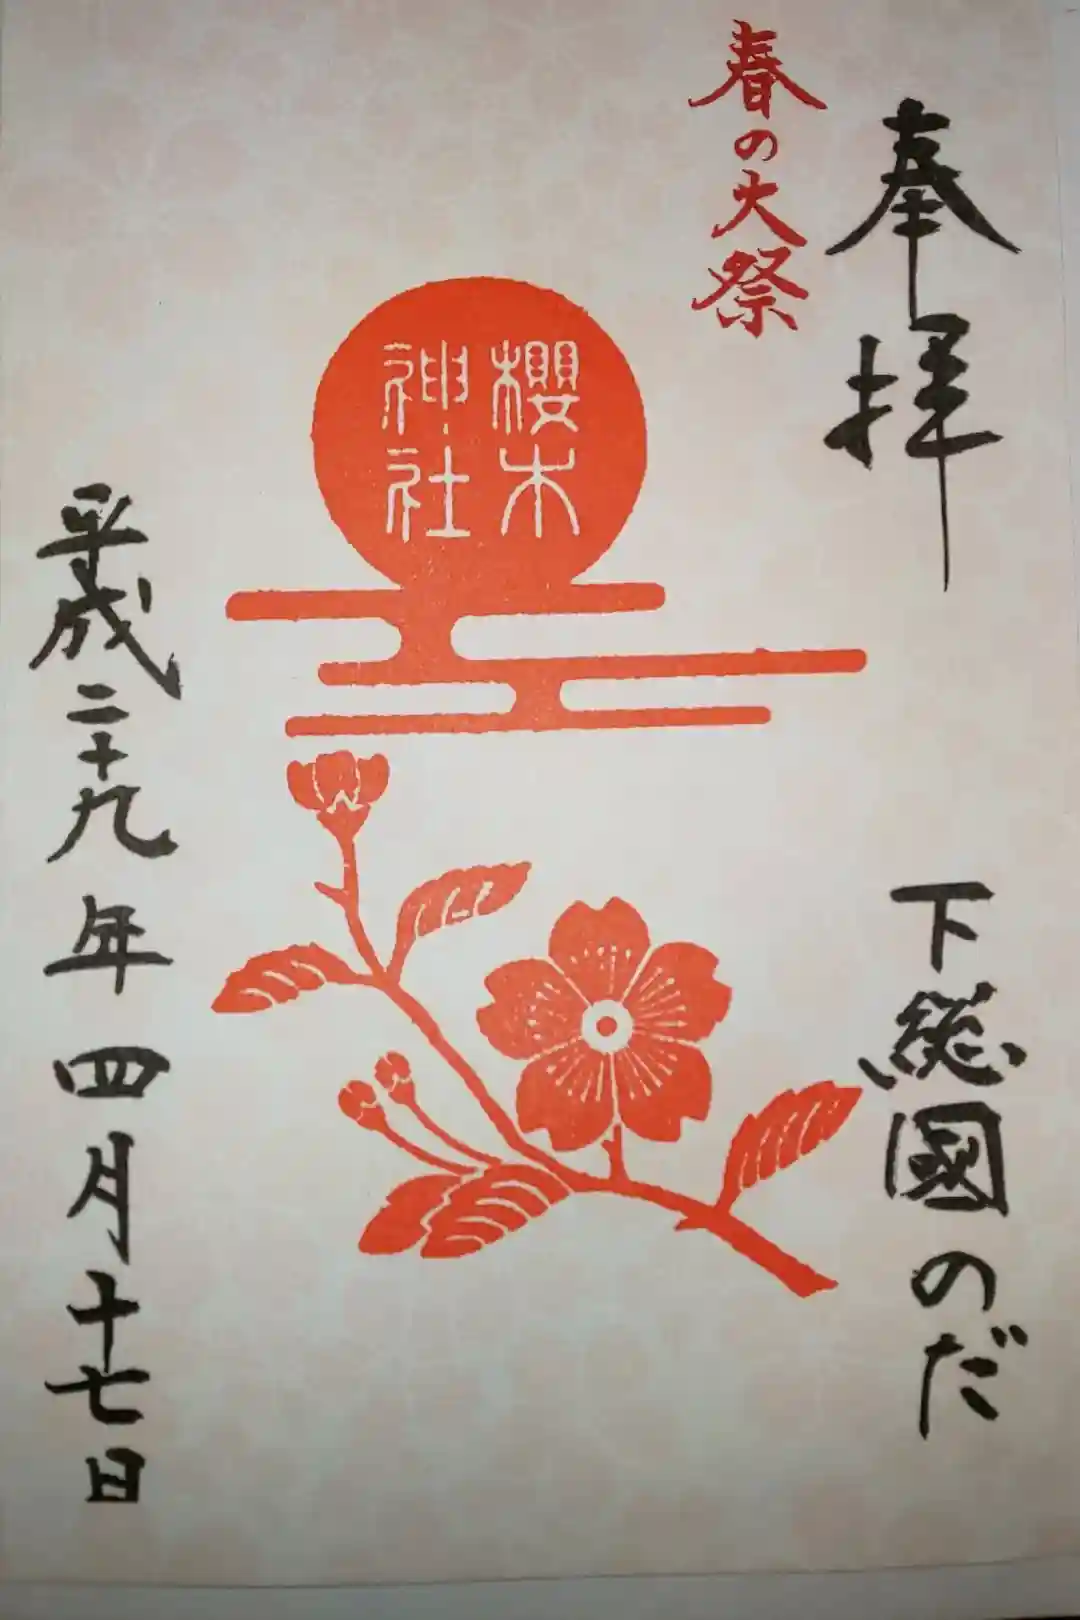 奉拝
下総國のだ
春の大祭
櫻木
神社
平成二十九年四月十七日